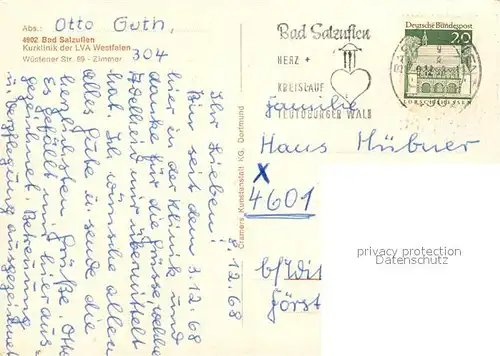 Abs.: Otto Guth,
4902 Bad Salzuflen
Kurklinik der LVA Westfalen
Wüstener Str. 69 - Zimmer 304
8.12.68
Ihr Lieben!
Bin seit dem 3.12.68
hier in der Klinik und
danke für die Grüsse, welche
Adelheid mir übermittelt
hat. Ich wünsche allen
alles Gute u. sende die
herzlichsten Grüße. Otto
Es gefällt mir hier aus-
gezeichnet. Betreuung
u. Verpflegung ausgezeichnet
Cramers Kunstanstalt KG. Dortmund
Bad Salzuflen
HERZ +
KREISLAUF
TEUTOBURGER WALD
Deutsche Bundespost
20
LORSCH/HESSEN
Familie
Hans Hübner
X
4601
b/Wit
privacy protection
Datenschutz